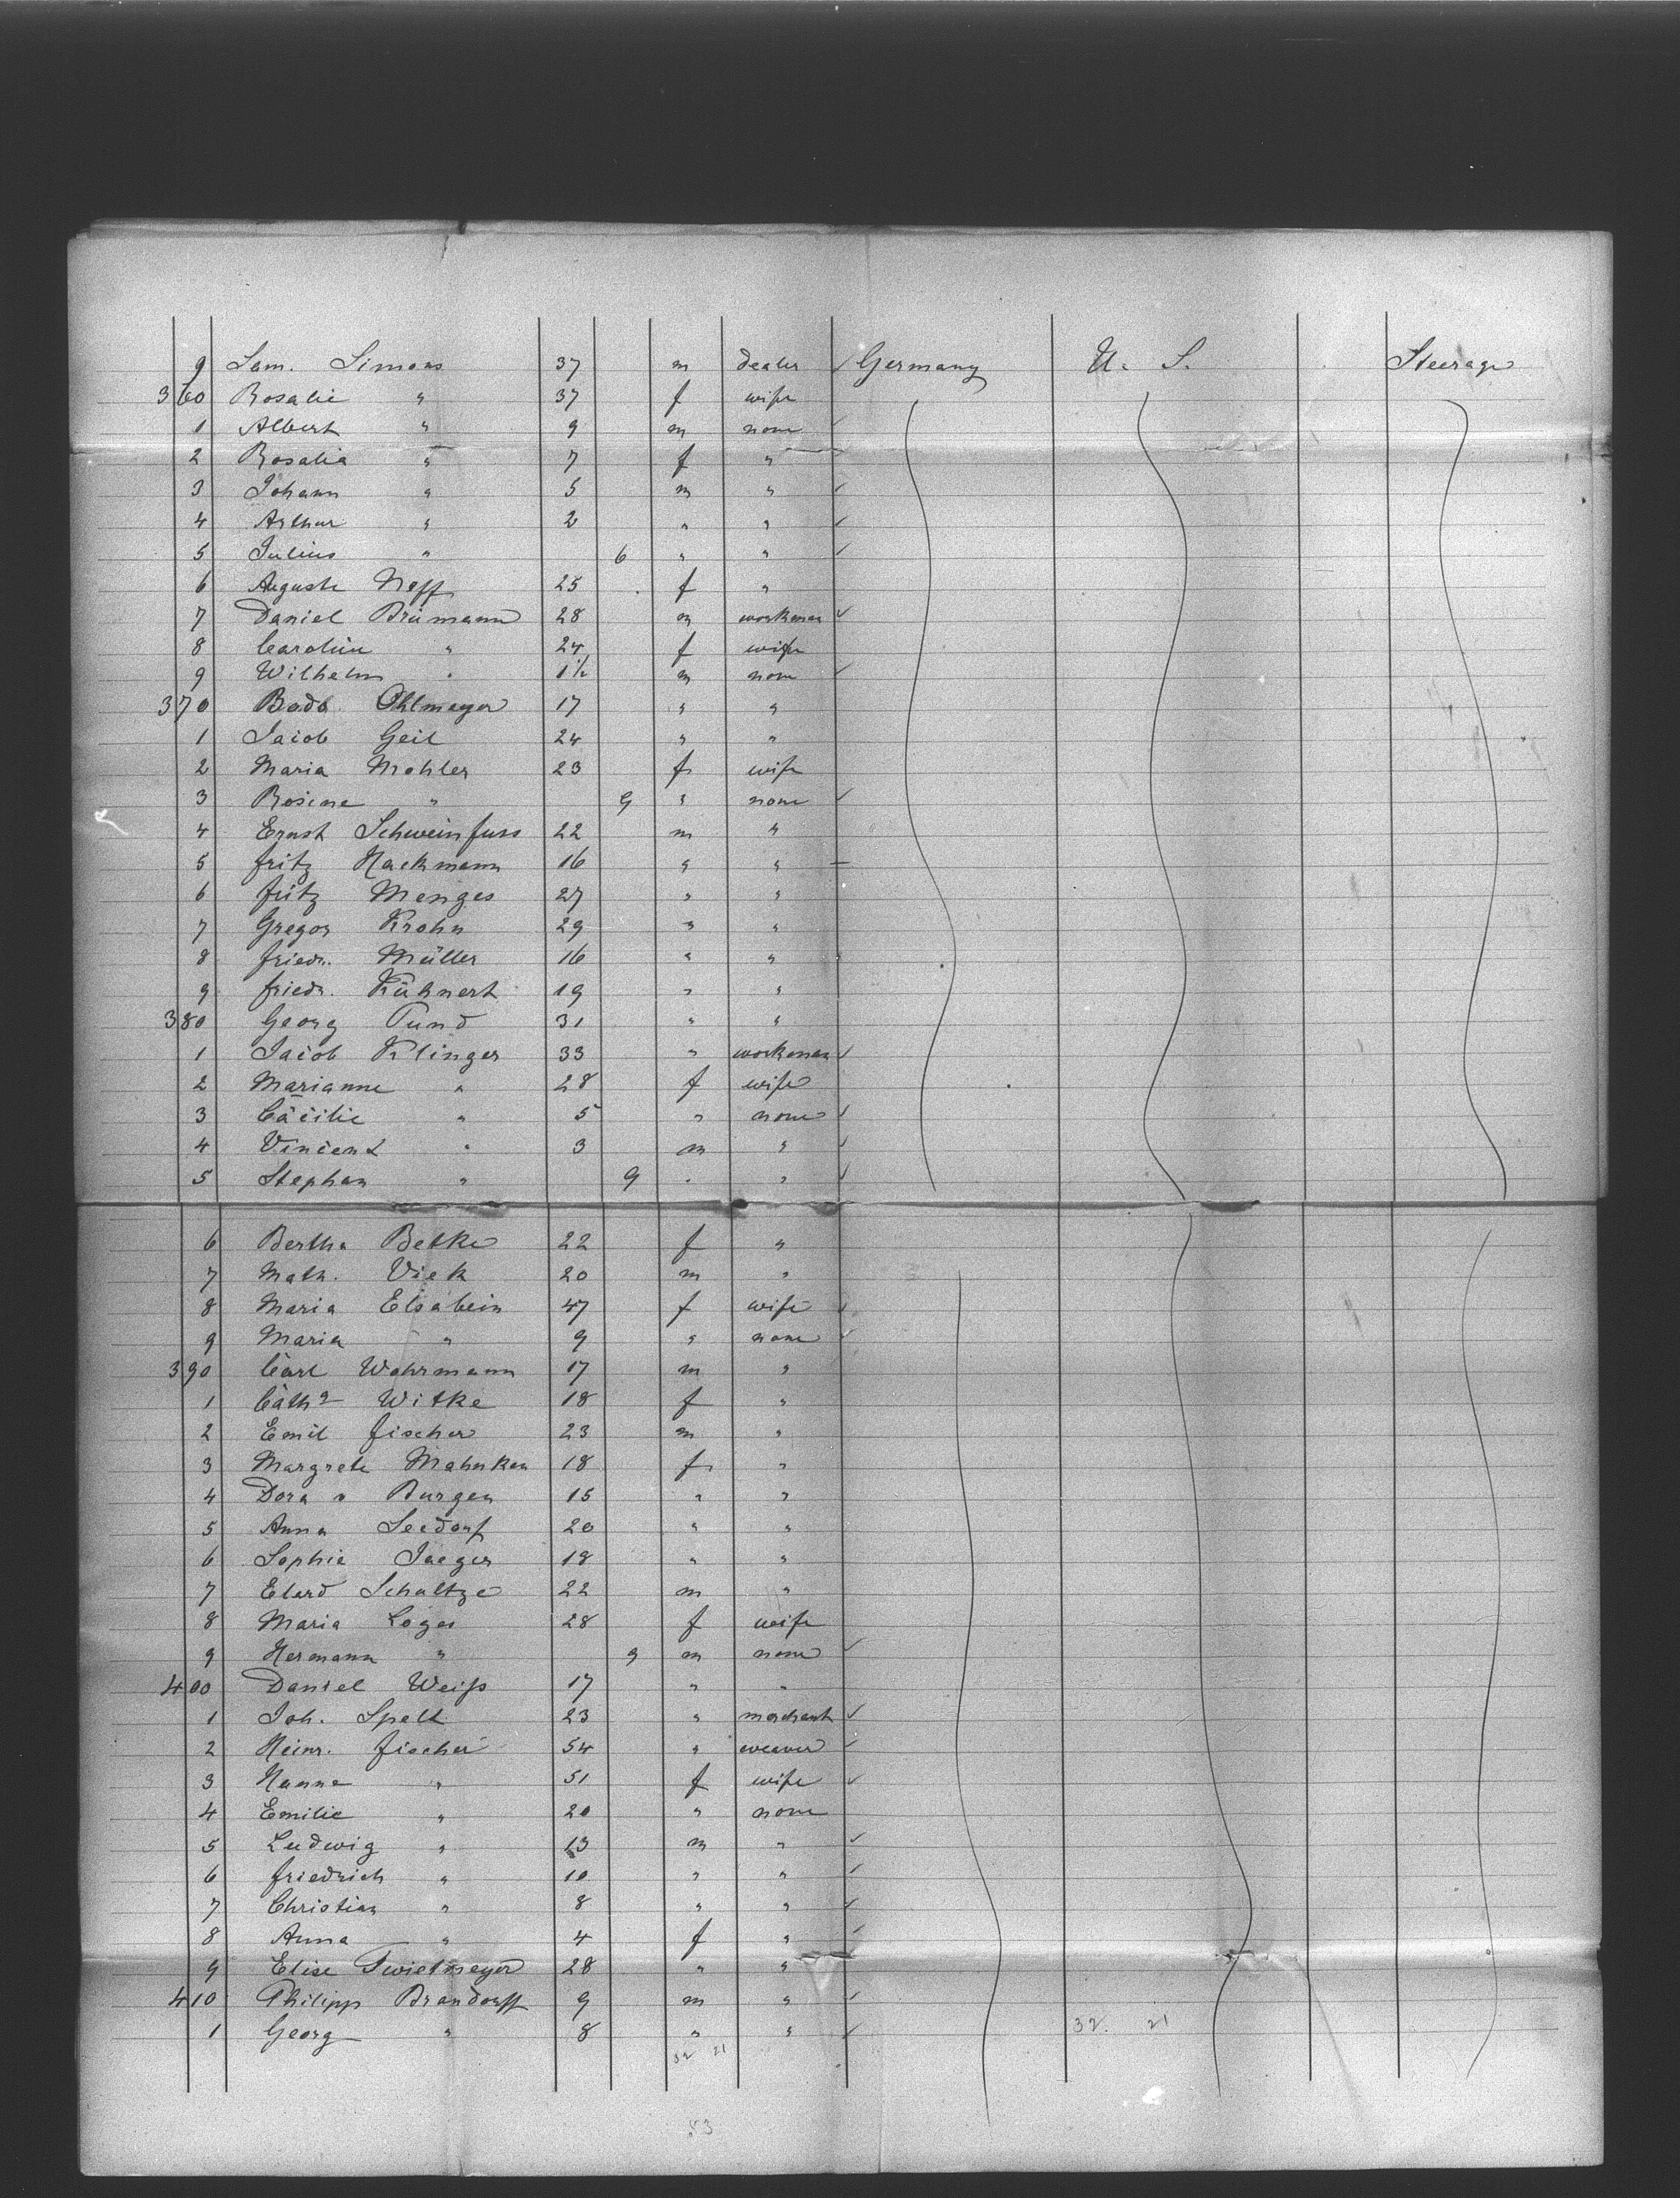 9 Sam. Simons 37 m dealer Germany U. S. Steerage
360 Rosalie " 37 f wife
1 Albert " 9 m none
2 Rosalia " 7 f "
3 Johann " 5 m "
4 Arthur " 2 " "
5 Julius " 6 " "
6 Auguste Neff 25 f "
7 Daniel Brümann 28 m workman
8 Caroline " 24 f wife
9 Wilhelm " 1½ m none
370 Bodo Ohlmeyer 17 " "
1 Jacob Geil 24 " "
2 Maria Mohler 23 f wife
3 Rosine " 9 " none
4 Ernst Schweinfuss 22 m "
5 Fritz Hackmann 16 " "
6 Fritz Menges 27 " "
7 Gregor Krohn 29 " "
8 Friedr. Müller 16 " "
9 Friedr. Kühnert 19 " "
380 Georg Pund 31 " "
1 Jacob Klinger 33 " workman
2 Marianne " 28 f wife
3 Cäcilie " 5 " none
4 Vincent " 3 m "
5 Stephan " 9 " "
6 Bertha Betke 22 f "
7 Math. Viek 20 m "
8 Maria Elsabein 47 f wife
9 Maria " 9 " none
390 Carl Wahrmann 17 m "
1 Catha Witke 18 f "
2 Emil Fischer 23 m "
3 Margrete Mahnken 18 f "
4 Dora v Burgen 15 " "
5 Anna Seedorf 20 " "
6 Sophie Jaeger 18 " "
7 Elard Schultze 22 m "
8 Maria Loges 28 f wife
9 Hermann " 9 m none
400 Daniel Weiß 17 " "
1 Joh. Spelt 23 " merchant
2 Heinr. Fischer 54 " weaver
3 Hanne " 51 f wife
4 Emilie " 20 " none
5 Ludwig " 13 m "
6 Friedrich " 10 " "
7 Christian " 8 " "
8 Anna " 4 f "
9 Elise Twietmeyer 28 " "
410 Philipp Brandorff 9 m "
1 Georg " 8 " " 32. 21
32 21
53